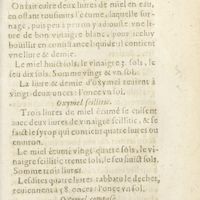 On fait cuire deux liures de miel en eau,
en ostant tousiours l'escume, laquelle sur-
nage, puis peu à peu on y adiouste vne liu-
re de bon vinaigre blanc, pour icelluy
bouillir en consistance liquide: il contient
vne liure & demie.
Le miel huict sols, le vinaigre 3. sols, le
feu dix sols. Somme vingt & vn sol.
La liure & demie d'oxymel reuient à
vingt-deux onces: l'once vn sol.
Oxymel scillitic.
Trois liures de miel escumé se cuisent
auec deux liures de vinaigre scillitic, & se
faict le syrop qui contient quatre liures ou
enuiron.
Le miel escumé vingt-quatre sols, le vi-
naigre scillitic trente sols, le feu huict sols.
Somme trois liures.
Lesdites quatre liures rabbatu le dechet,
reuiennent à 58. onces: l'once vn sol.
Oxymel composé